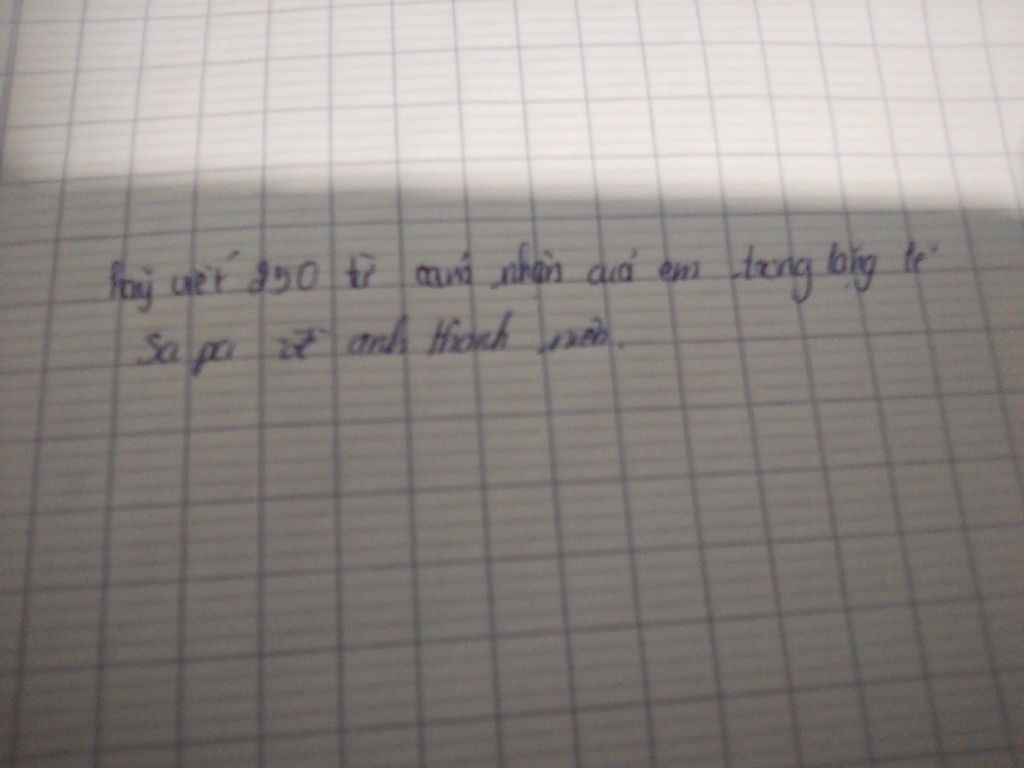 Hãy viết 250 từ nhân của em trong lặng lẽ
Sa pa về anh thanh niên.